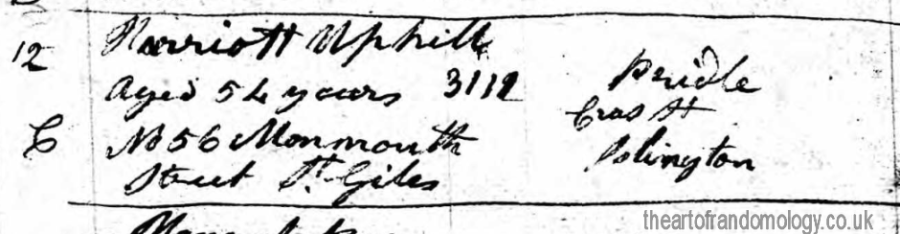 12 Harriott Uphill
Aged 54 years 3112 Pridle
Cros St
C No 56 Monmouth Islington
Street St. Giles
theartofrandomology.co.uk